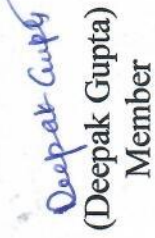 Deepak Gupta
(Deepak Gupta)
Member